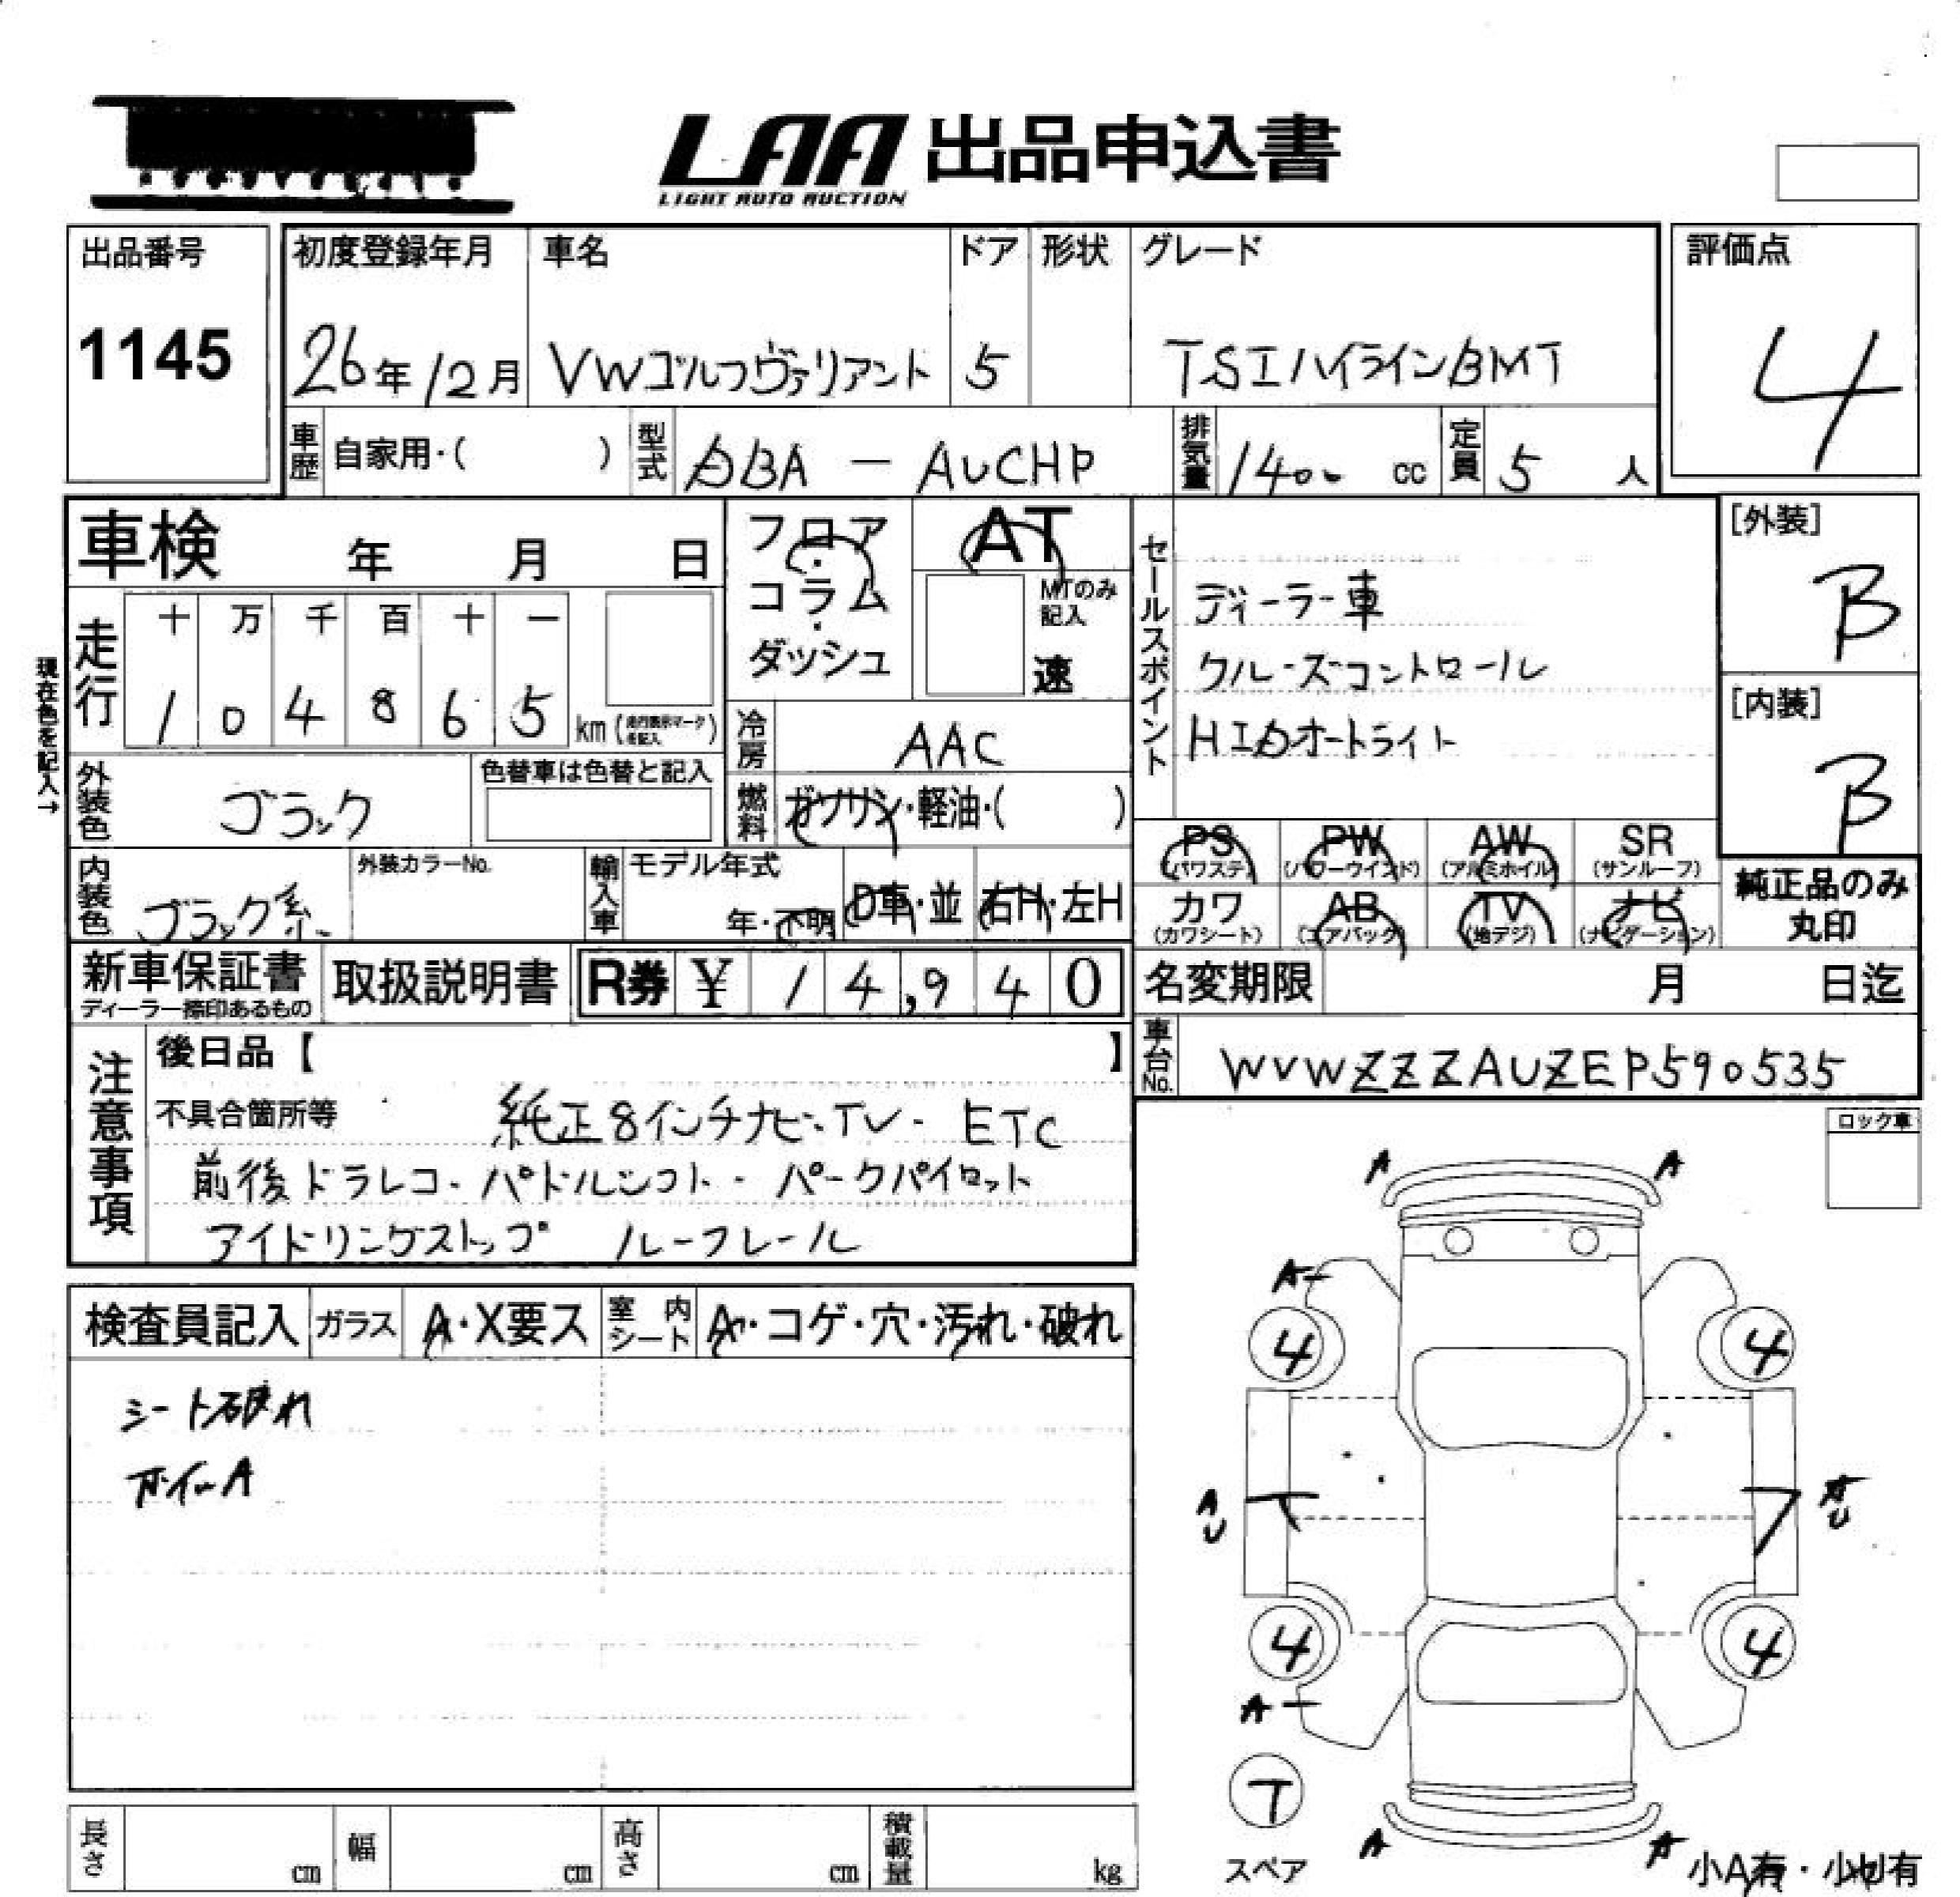 LAA 出品申込書
LIGHT AUTO AUCTION
出品番号
1145
初度登録年月
26年12月
車名
VWゴルフヴァリアント
ドア
5
形状
グレード
TSIハイラインBMT
評価点
4
車歴
自家用・( )
型式
DBA - AUCHP
排気量
1400 cc
定員
5 人
車検 年 月 日
フロア・コラム・ダッシュ
AT
MTのみ記入
速
セールスポイント
ディーラー車
クルーズコントロール
HIDオートライト
[外装]
B
[内装]
B
現在色を記入→
走行
十 万 千 百 十 一
1 0 4 8 6 5 km (走行表示マークを記入)
冷房
AAC
外装色
ブラック
色替車は色替と記入
燃料
ガソリン・軽油・( )
PS (パワステ)
PW (パワーウインド)
AW (アルミホイル)
SR (サンルーフ)
内装色
ブラック系
外装カラーNo.
輸入車
モデル年式
年・不明
D車・並
右H・左H
カワ (カワシート)
AB (エアバック)
TV (地デジ)
ナビ (ナビゲーション)
純正品のみ丸印
新車保証書
ディーラー捺印あるもの
取扱説明書
R券 ¥ 14,940
名変期限 月 日迄
車台No.
WVWZZZAUZEP590535
注意事項
後日品【 】
不具合箇所等 純正8インチナビ・TV・ETC
前後ドラレコ・パドルシフト・パークパイロット
アイドリングストップ ルーフレール
ロック車
検査員記入
ガラス
A・X要ス
室内シート
A・コゲ・穴・汚れ・破れ
シート破れ
ホイールA
A A
A
4 4
A U A U
4 4
A
T
スペア
A A
小A有・小U有
長さ cm
幅 cm
高さ cm
積載量 kg